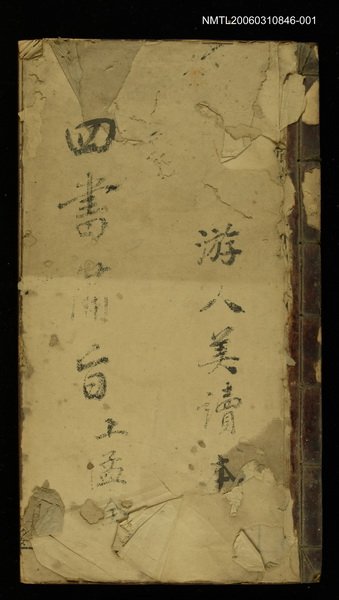 NMTL20060310846-001
游人美讀本
四書備旨上孟